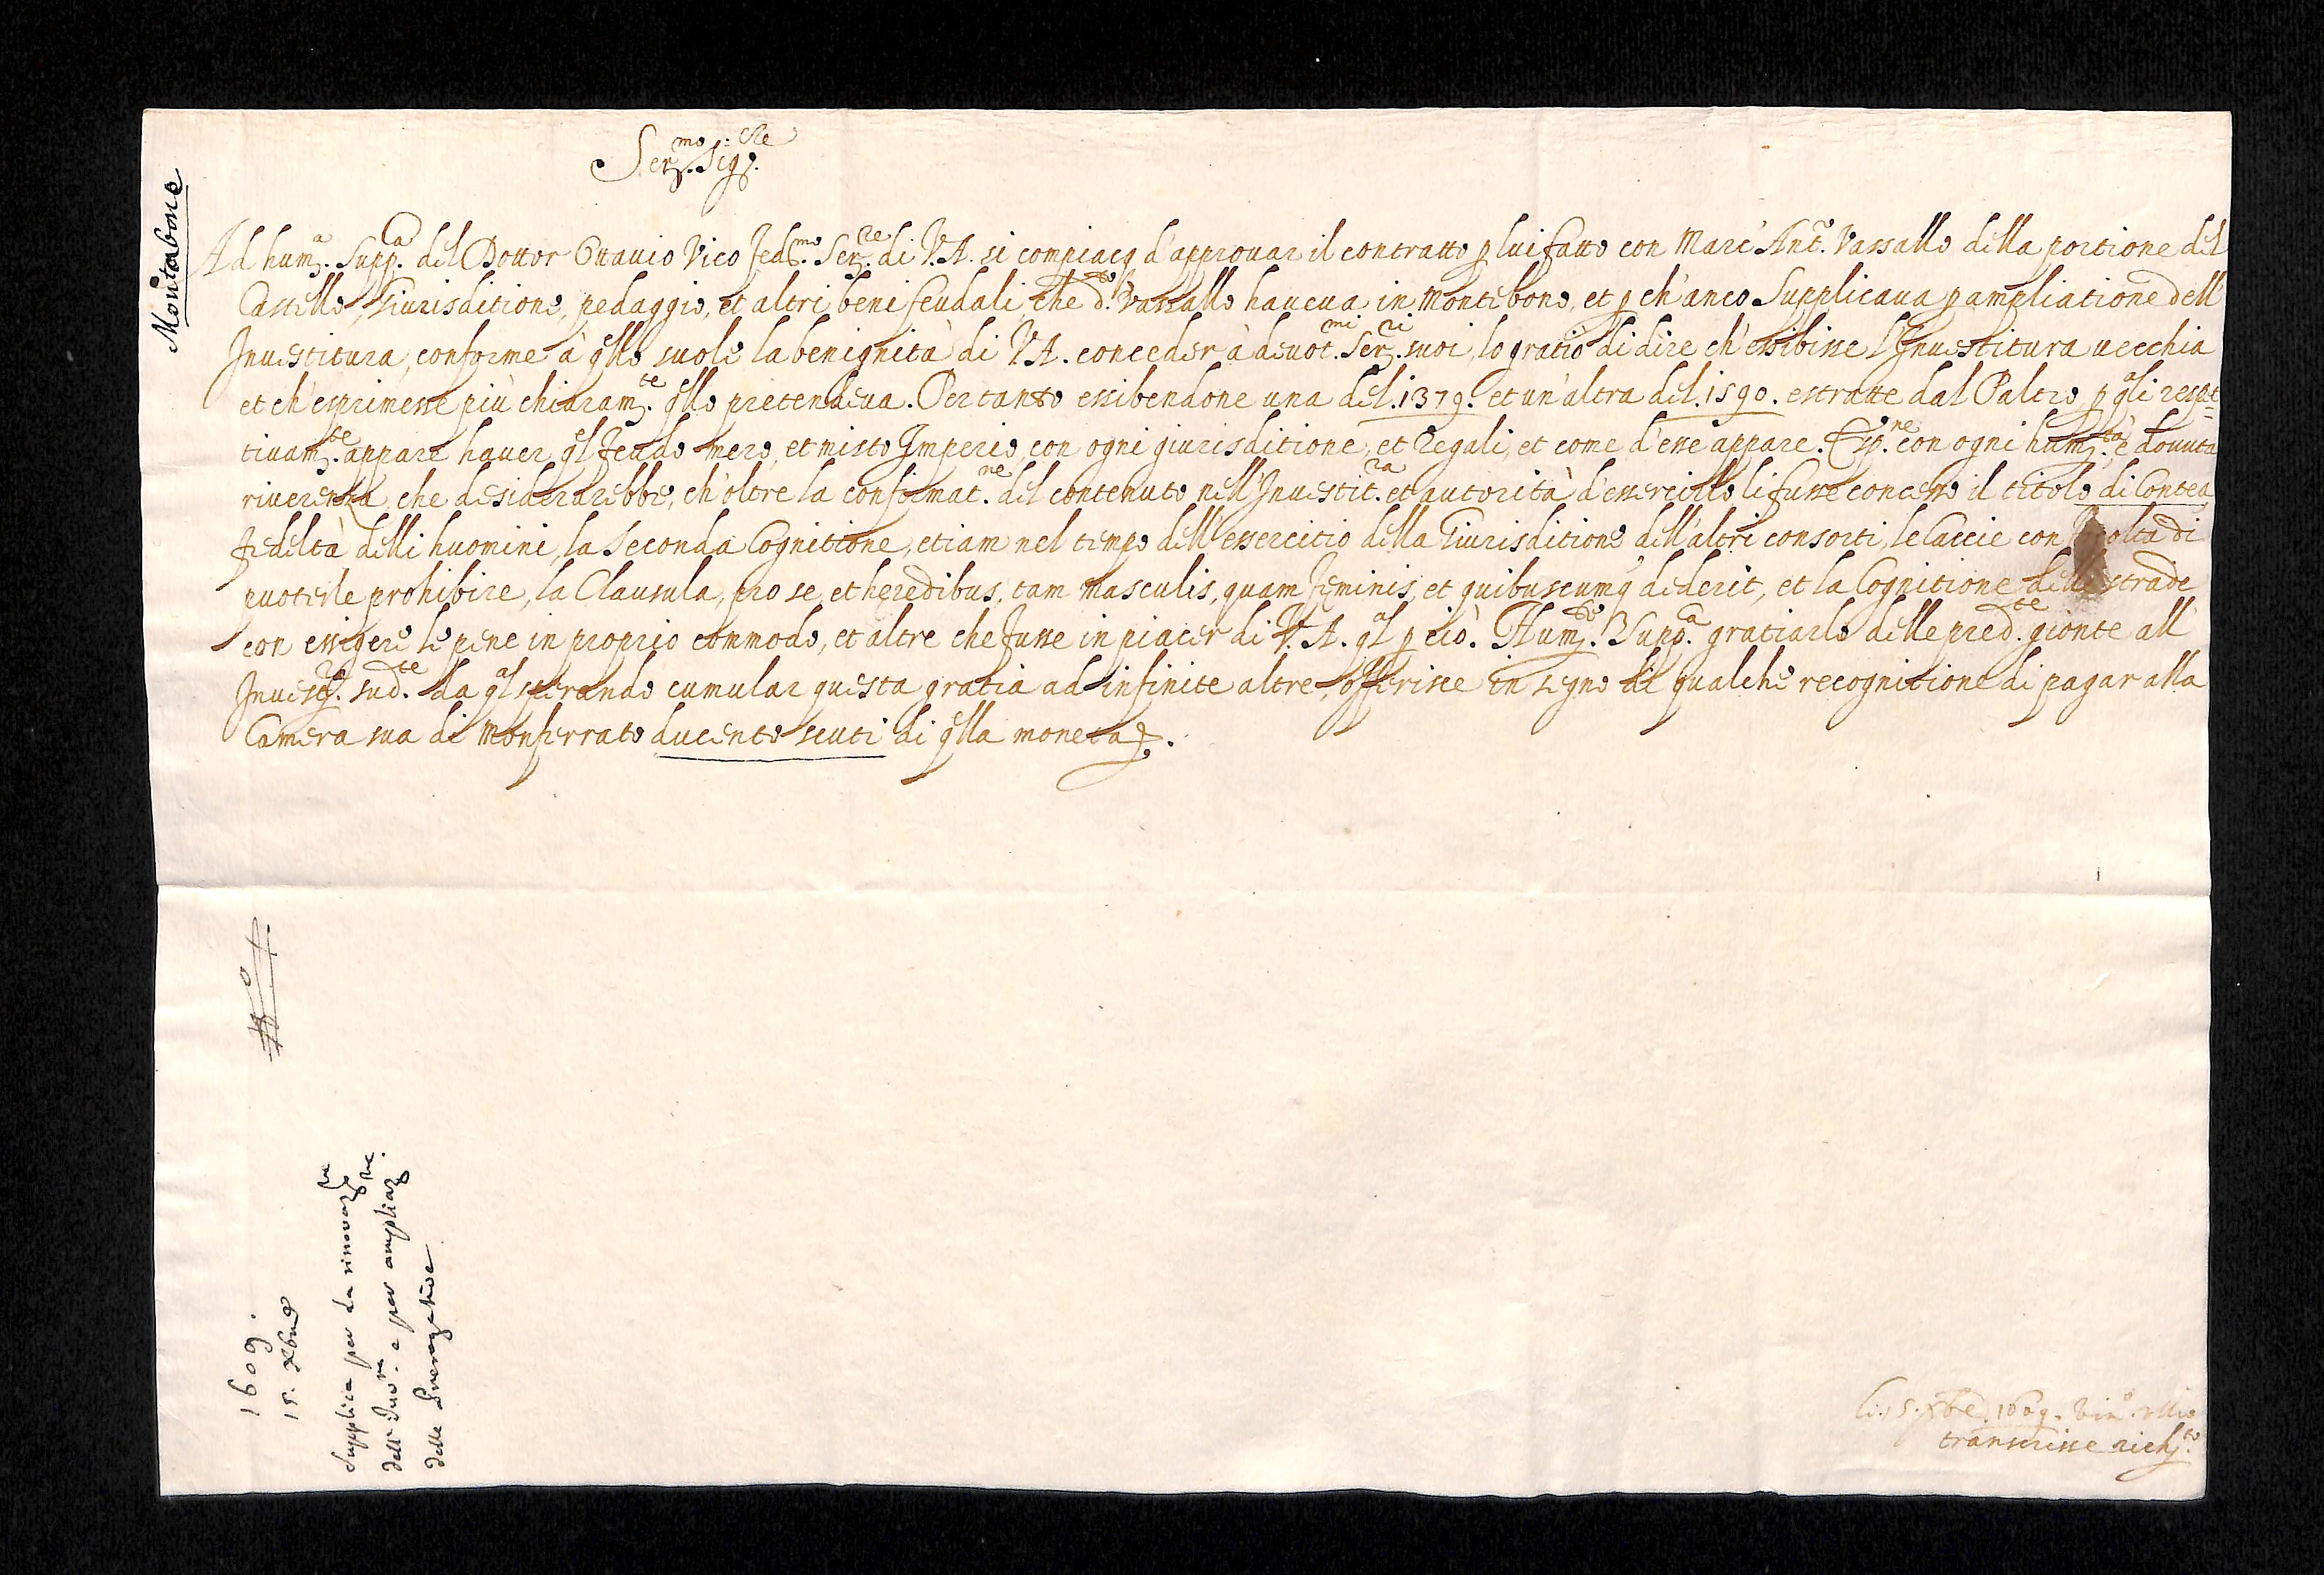 Montabone
Ser.mo Sig.re
Ad hum.a Supp.a del Dottor Ottauio Vico fed.mo Ser.re di V.A. si compiacq d'approuar il contratto p lui fatto con Marc'Ant.o Vassallo della portione del
Castello, Giurisditione, pedaggio, et altri beni feudali, che d.to Vassallo haueua in Montebono, et p ch'anco Supplicaua p ampliatione dell'
Inuestitura, conforme à q̃llo suole la benignità di V.A. conceder à deuot.mi Ser.ri suoi, lo gratiò di dire ch'essibisse l'Inuestitura uecchia
et ch'esprimesse più chiaram.te q̃llo pretendeua. Per tanto essibendone una del .1379. et un'altra del .1590. estratte dal Paltro, p q̃li respet=
tiuam.te appare hauer q̃l feudo mero, et misto Imperio, con ogni giurisditione, et Regali, et come d'esse appare. Esp.ne con ogni hum.tà è douuta
riuerenza, che desiderarebbe, ch'oltre la confirmat.ne del contenuto nell'Inuestit.ra et autorità d'essercillo li fusse concesso il titolo di Contea
fedeltà delli huomini, la Seconda Cognitione, etiam nel tempo dell'essercitio della Giurisditione dell'altri consorti, le Caccie con oltà di
puoterle prohibire, la Clausula, pro se, et heredibus, tam masculis, quam feminis, et quibuscumq dederit, et la Cognitione delle strade
con essigere le pene in proprio commodo, et altre che fusse in piacer di V.A. q̃l p ciò. Hum.te Supp.a gratiarlo delle pred.te gionte all'
Inuest.ra sud.te da q̃l sperando cumular questa gratia ad infinite altre, offerisce in segno di qualche recognitione di pagar alla
Camera sua di Monferrato ducento scuti di q̃lla moneta.
1609.
15. Xbre
Supplica per la rinovaz.ne
dell'Inv.ra e per ampliaz.ne
delle Prerogative
li .15. Xbre .1609.
transcrisse